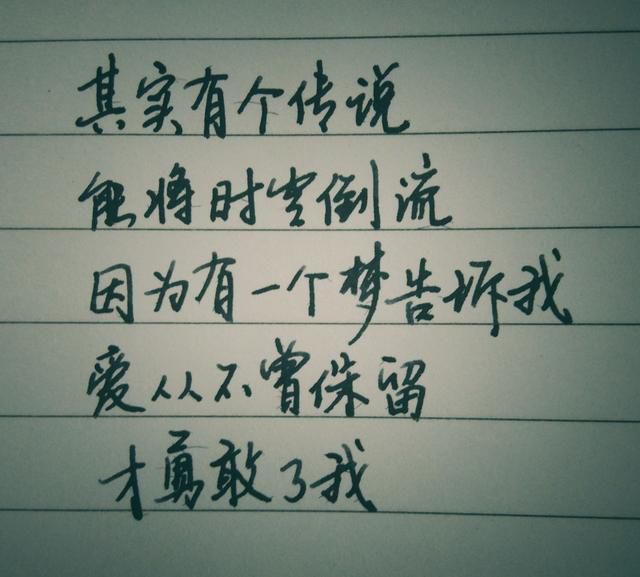 其实有个传说
能将时空倒流
因为有一个梦告诉我
爱从不曾保留
才勇敢了我